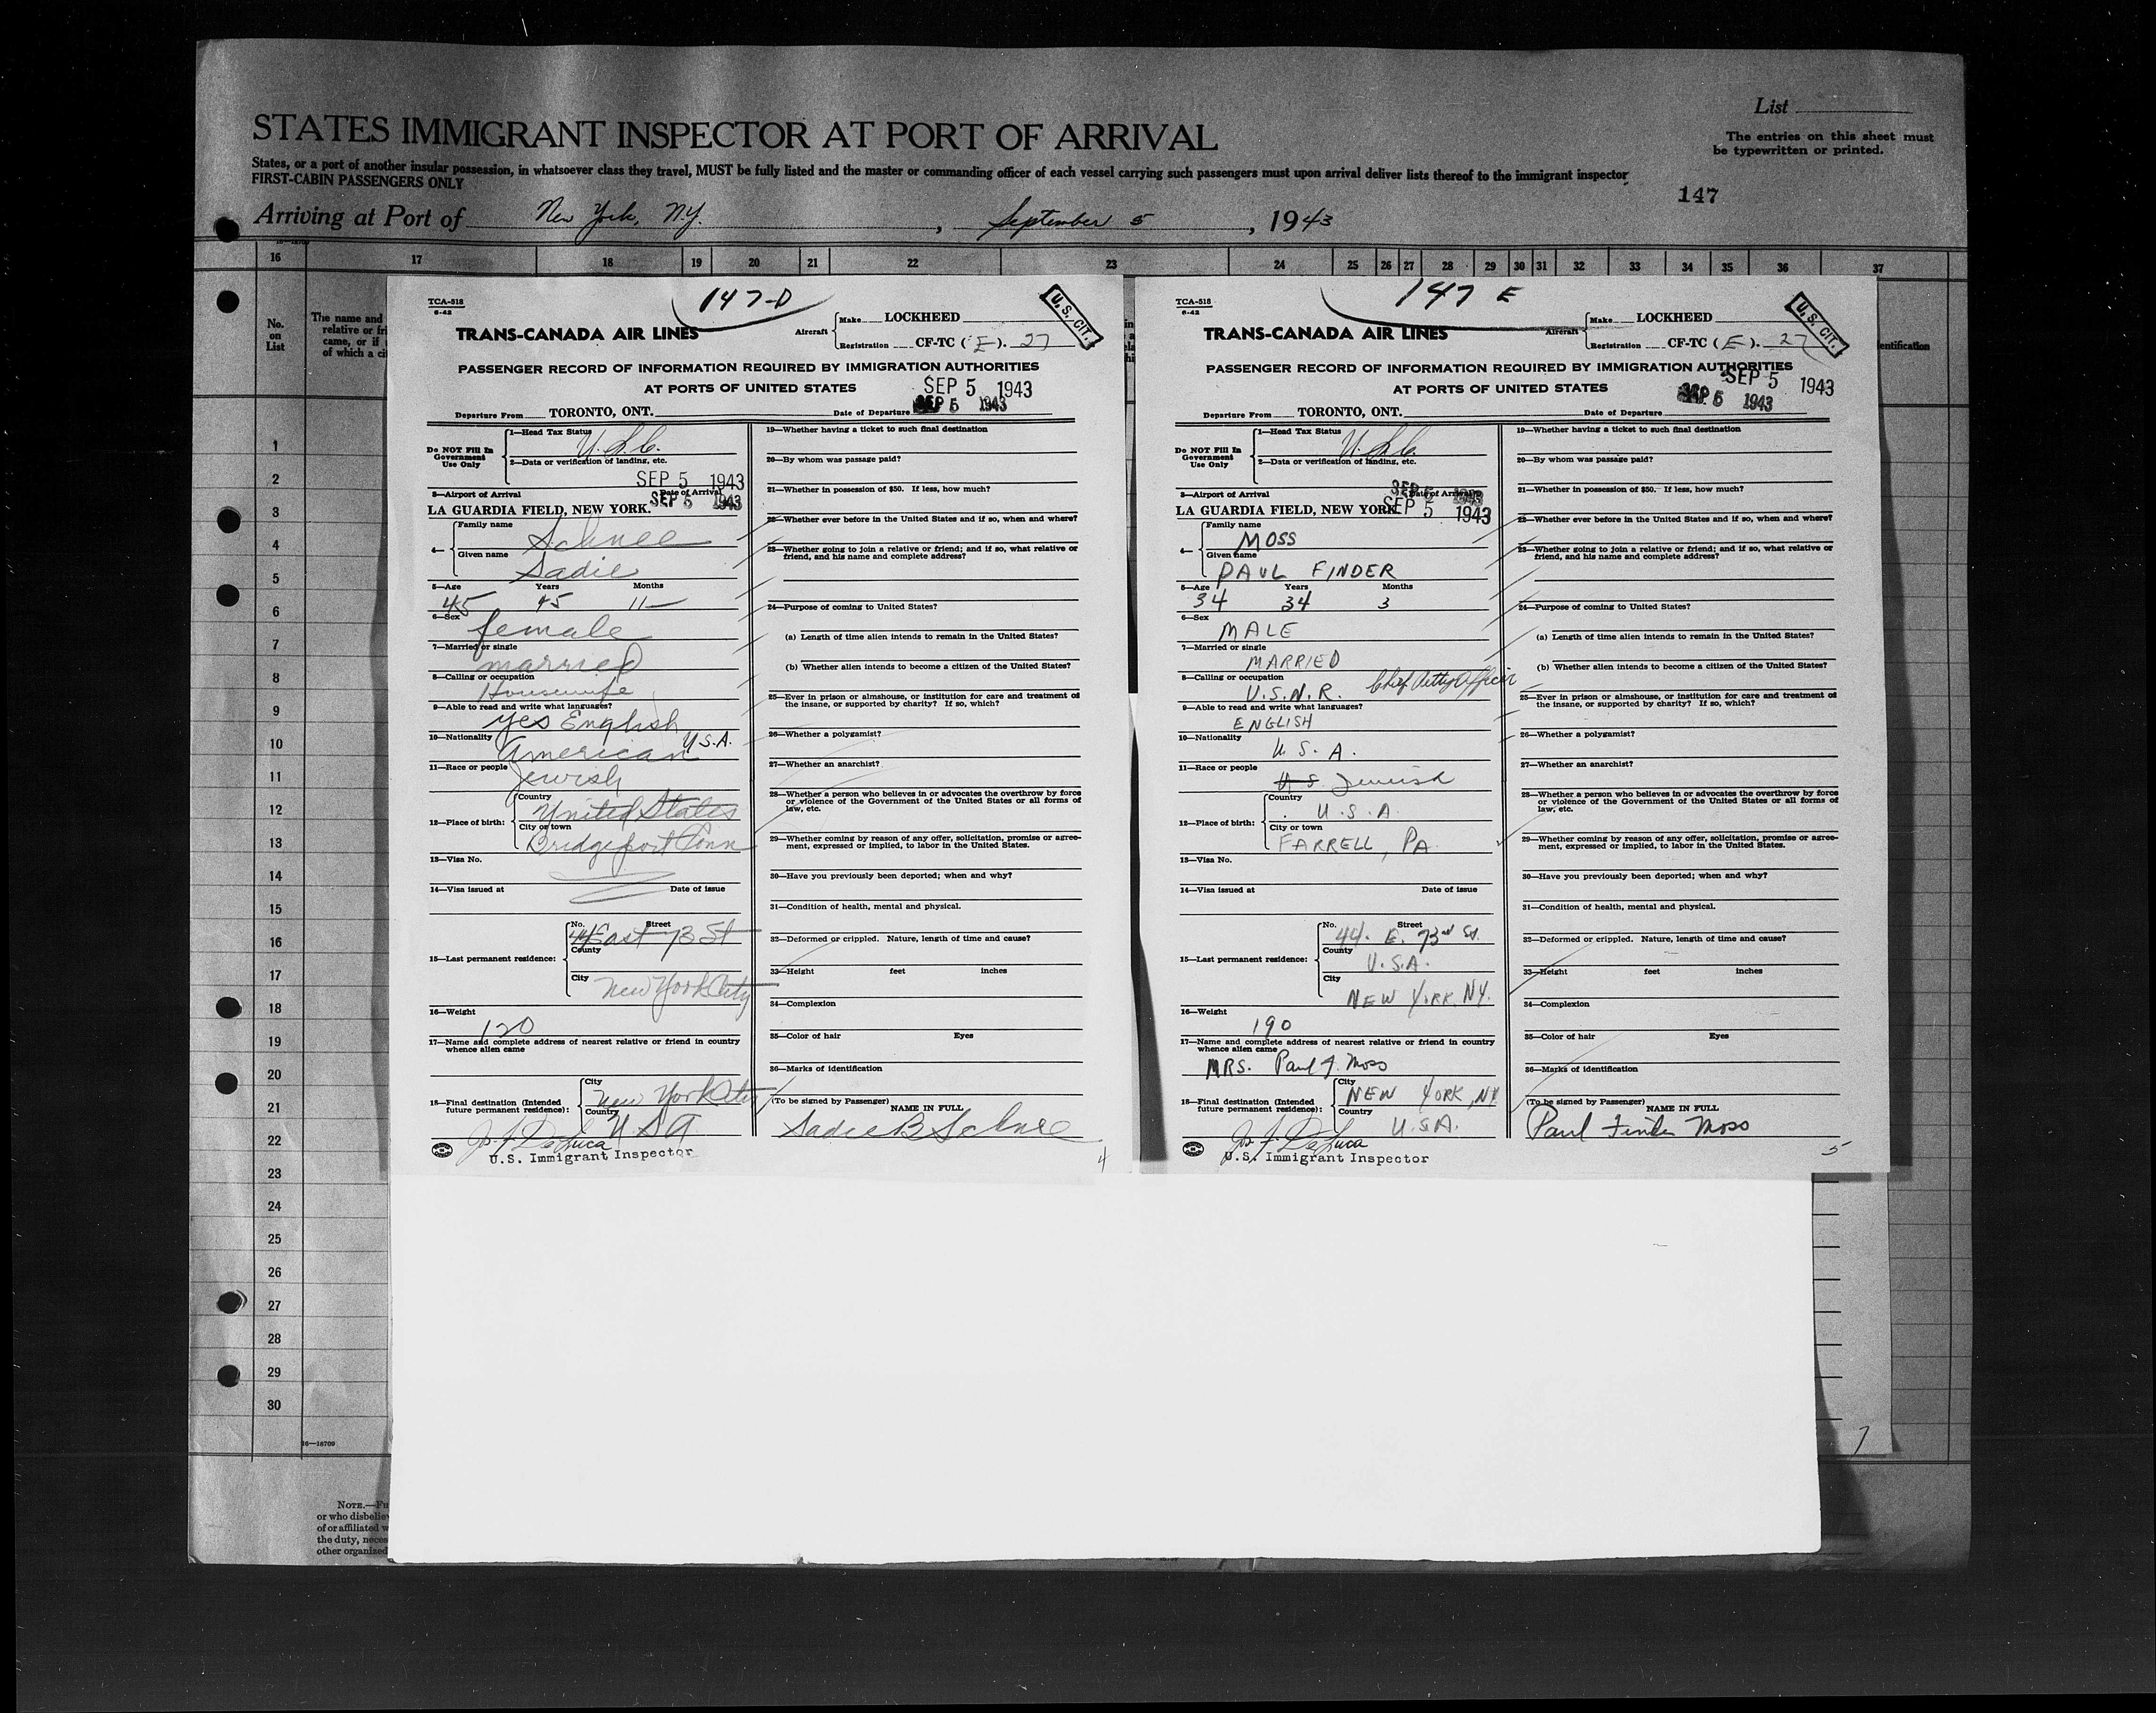 List
STATES IMMIGRANT INSPECTOR AT PORT OF ARRIVAL
The entries on this sheet must
be typewritten or printed.
States, or a port of another insular possession, in whatsoever class they travel, MUST be fully listed and the master or commanding officer of each vessel carrying such passengers must upon arrival deliver lists thereof to the immigrant inspector
FIRST-CABIN PASSENGERS ONLY
147
Arriving at Port of New York, N.Y. , September 5 , 1943
16 17 18 19 20 21 22 23 24 25 26 27 28 29 30 31 32 33 34 35 36 37
No.
on
List
The name and
relative or fri
came, or if
of which a ci
entification
1
2
3
4
5
6
7
8
9
10
11
12
13
14
15
16
17
18
19
20
21
22
23
24
25
26
27
28
29
30
16—18709
NOTE.—Fu
or who disbelie
of or affiliated w
the duty, neces
other organized
TCA-518
6-42
147-D
U.S. CIT.
TRANS-CANADA AIR LINES
Aircraft
Make LOCKHEED
Registration CF-TC ( E ). 27
PASSENGER RECORD OF INFORMATION REQUIRED BY IMMIGRATION AUTHORITIES
AT PORTS OF UNITED STATES
SEP 5 1943
Departure From TORONTO, ONT. Date of Departure SEP 5 1943
Do NOT Fill In
Government
Use Only
1—Head Tax Status U.S.C.
2—Data or verification of landing, etc.
SEP 5 1943
3—Airport of Arrival Date of Arrival
LA GUARDIA FIELD, NEW YORK. SEP 5 1943
4—
Family name Schnee
Given name Sadie
5—Age Years Months
45 45 11
6—Sex female
7—Married or single married
8—Calling or occupation Housewife
9—Able to read and write what languages?
yes English
10—Nationality American U.S.A.
11—Race or people Jewish
12—Place of birth:
Country United States
City or town Bridgeport Conn
13—Visa No.
14—Visa issued at Date of issue
15—Last permanent residence:
No. Street
44 East 73 St
County
City New York City
16—Weight 120
17—Name and complete address of nearest relative or friend in country
whence alien came
18—Final destination (Intended
future permanent residence):
City New York City
Country U S A
Jos. F. DeLuca
U.S. Immigrant Inspector
19—Whether having a ticket to such final destination
20—By whom was passage paid?
21—Whether in possession of $50. If less, how much?
22—Whether ever before in the United States and if so, when and where?
23—Whether going to join a relative or friend; and if so, what relative or
friend, and his name and complete address?
24—Purpose of coming to United States?
(a) Length of time alien intends to remain in the United States?
(b) Whether alien intends to become a citizen of the United States?
25—Ever in prison or almshouse, or institution for care and treatment of
the insane, or supported by charity? If so, which?
26—Whether a polygamist?
27—Whether an anarchist?
28—Whether a person who believes in or advocates the overthrow by force
or violence of the Government of the United States or all forms of
law, etc.
29—Whether coming by reason of any offer, solicitation, promise or agree-
ment, expressed or implied, to labor in the United States.
30—Have you previously been deported; when and why?
31—Condition of health, mental and physical.
32—Deformed or crippled. Nature, length of time and cause?
33—Height feet inches
34—Complexion
35—Color of hair Eyes
36—Marks of identification
(To be signed by Passenger) NAME IN FULL
Sadie B Schnee
4
TCA-518
6-42
147 E
U.S. CIT.
TRANS-CANADA AIR LINES
Aircraft
Make LOCKHEED
Registration CF-TC ( E ). 27
PASSENGER RECORD OF INFORMATION REQUIRED BY IMMIGRATION AUTHORITIES
AT PORTS OF UNITED STATES
SEP 5 1943
Departure From TORONTO, ONT. Date of Departure SEP 5 1943
Do NOT Fill In
Government
Use Only
1—Head Tax Status U.S.C.
2—Data or verification of landing, etc.
SEP 5 1943
3—Airport of Arrival Date of Arrival
LA GUARDIA FIELD, NEW YORK. SEP 5 1943
4—
Family name MOSS
Given name PAUL FINDER
5—Age Years Months
34 34 3
6—Sex MALE
7—Married or single MARRIED
8—Calling or occupation U.S.N.R. Chief Petty Officer
9—Able to read and write what languages?
ENGLISH
10—Nationality U.S.A.
11—Race or people U S Jewish
12—Place of birth:
Country U.S.A.
City or town FARRELL, PA
13—Visa No.
14—Visa issued at Date of issue
15—Last permanent residence:
No. Street
44. E. 73rd St.
County U.S.A.
City NEW YORK, NY.
16—Weight 190
17—Name and complete address of nearest relative or friend in country
whence alien came
MRS. Paul F. Moss
18—Final destination (Intended
future permanent residence):
City NEW YORK, NY
Country U.S.A.
Jos. F. DeLuca
U.S. Immigrant Inspector
19—Whether having a ticket to such final destination
20—By whom was passage paid?
21—Whether in possession of $50. If less, how much?
22—Whether ever before in the United States and if so, when and where?
23—Whether going to join a relative or friend; and if so, what relative or
friend, and his name and complete address?
24—Purpose of coming to United States?
(a) Length of time alien intends to remain in the United States?
(b) Whether alien intends to become a citizen of the United States?
25—Ever in prison or almshouse, or institution for care and treatment of
the insane, or supported by charity? If so, which?
26—Whether a polygamist?
27—Whether an anarchist?
28—Whether a person who believes in or advocates the overthrow by force
or violence of the Government of the United States or all forms of
law, etc.
29—Whether coming by reason of any offer, solicitation, promise or agree-
ment, expressed or implied, to labor in the United States.
30—Have you previously been deported; when and why?
31—Condition of health, mental and physical.
32—Deformed or crippled. Nature, length of time and cause?
33—Height feet inches
34—Complexion
35—Color of hair Eyes
36—Marks of identification
(To be signed by Passenger) NAME IN FULL
Paul Finder Moss
5
7